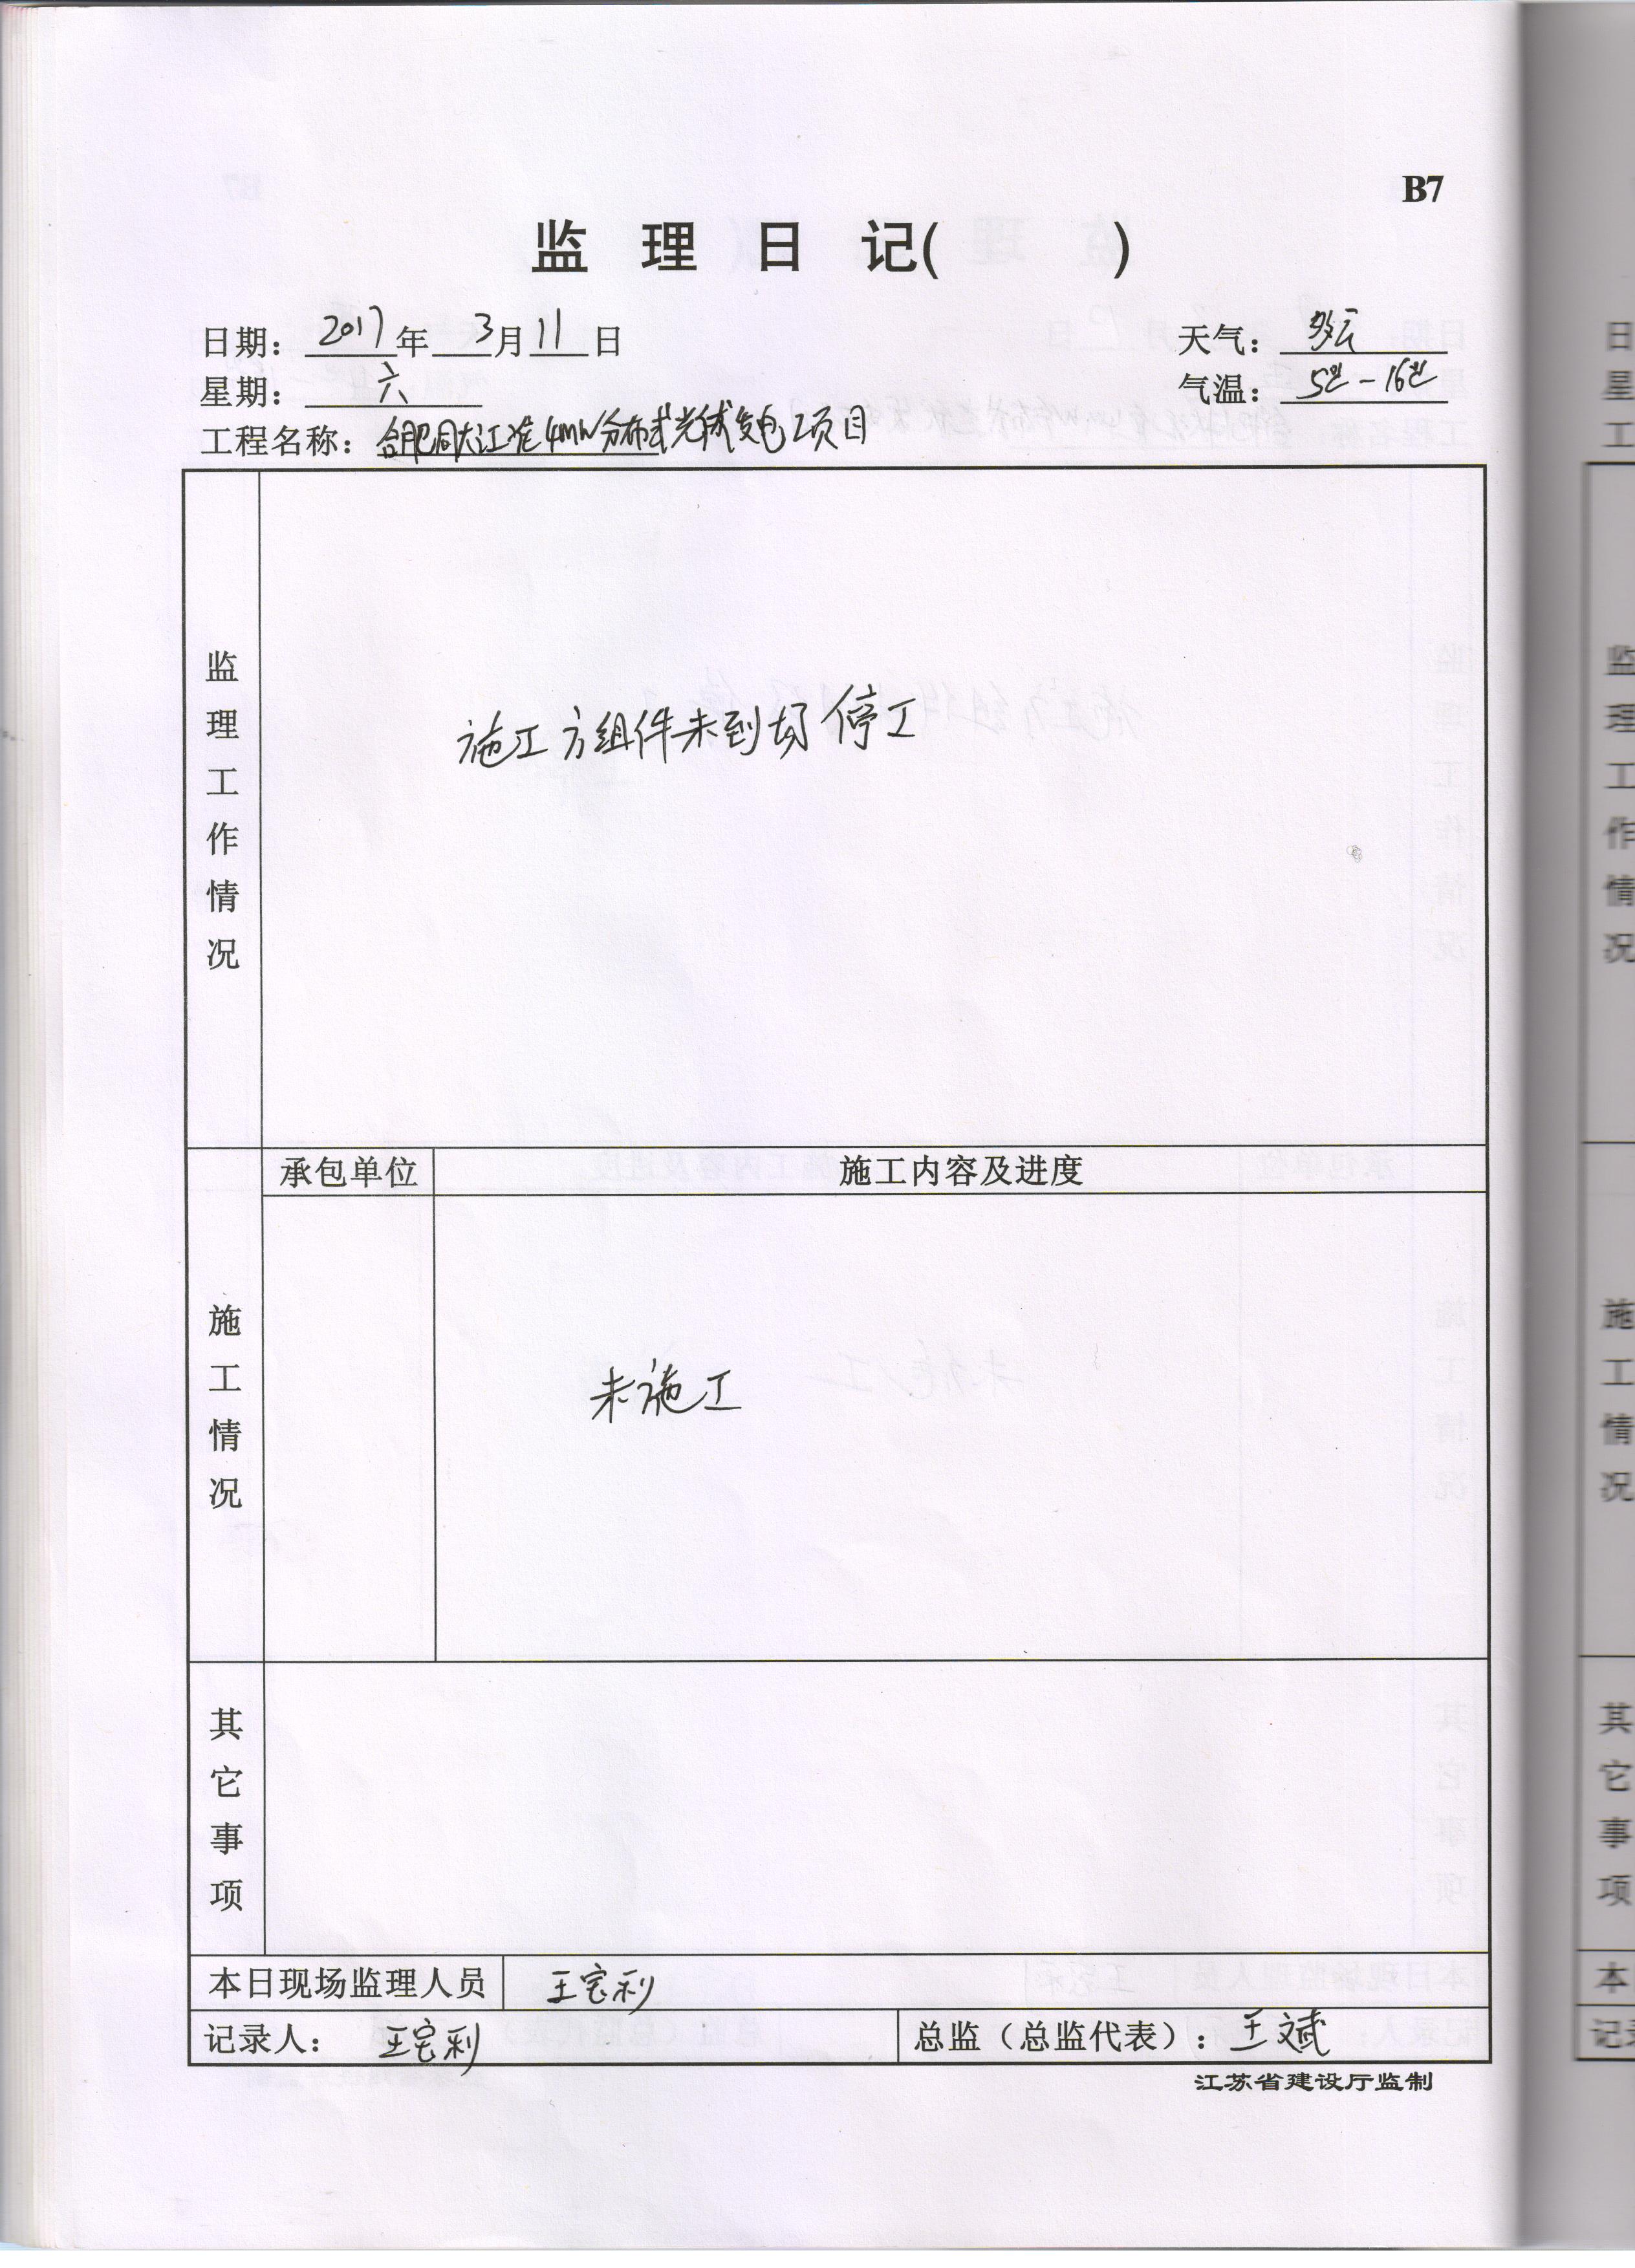 B7
监 理 日 记( )
日期: 2017 年 3 月 11 日 天气: 多云
星期: 六 气温: 5℃-16℃
工程名称: 合肥同大江淮4MW分布式光伏发电项目
监理工作情况
施工方组件未到场 停工
承包单位 施工内容及进度
施工情况
未施工
其它事项
本日现场监理人员 王宝利
记录人: 王宝利 总监（总监代表）: 王斌
江苏省建设厅监制